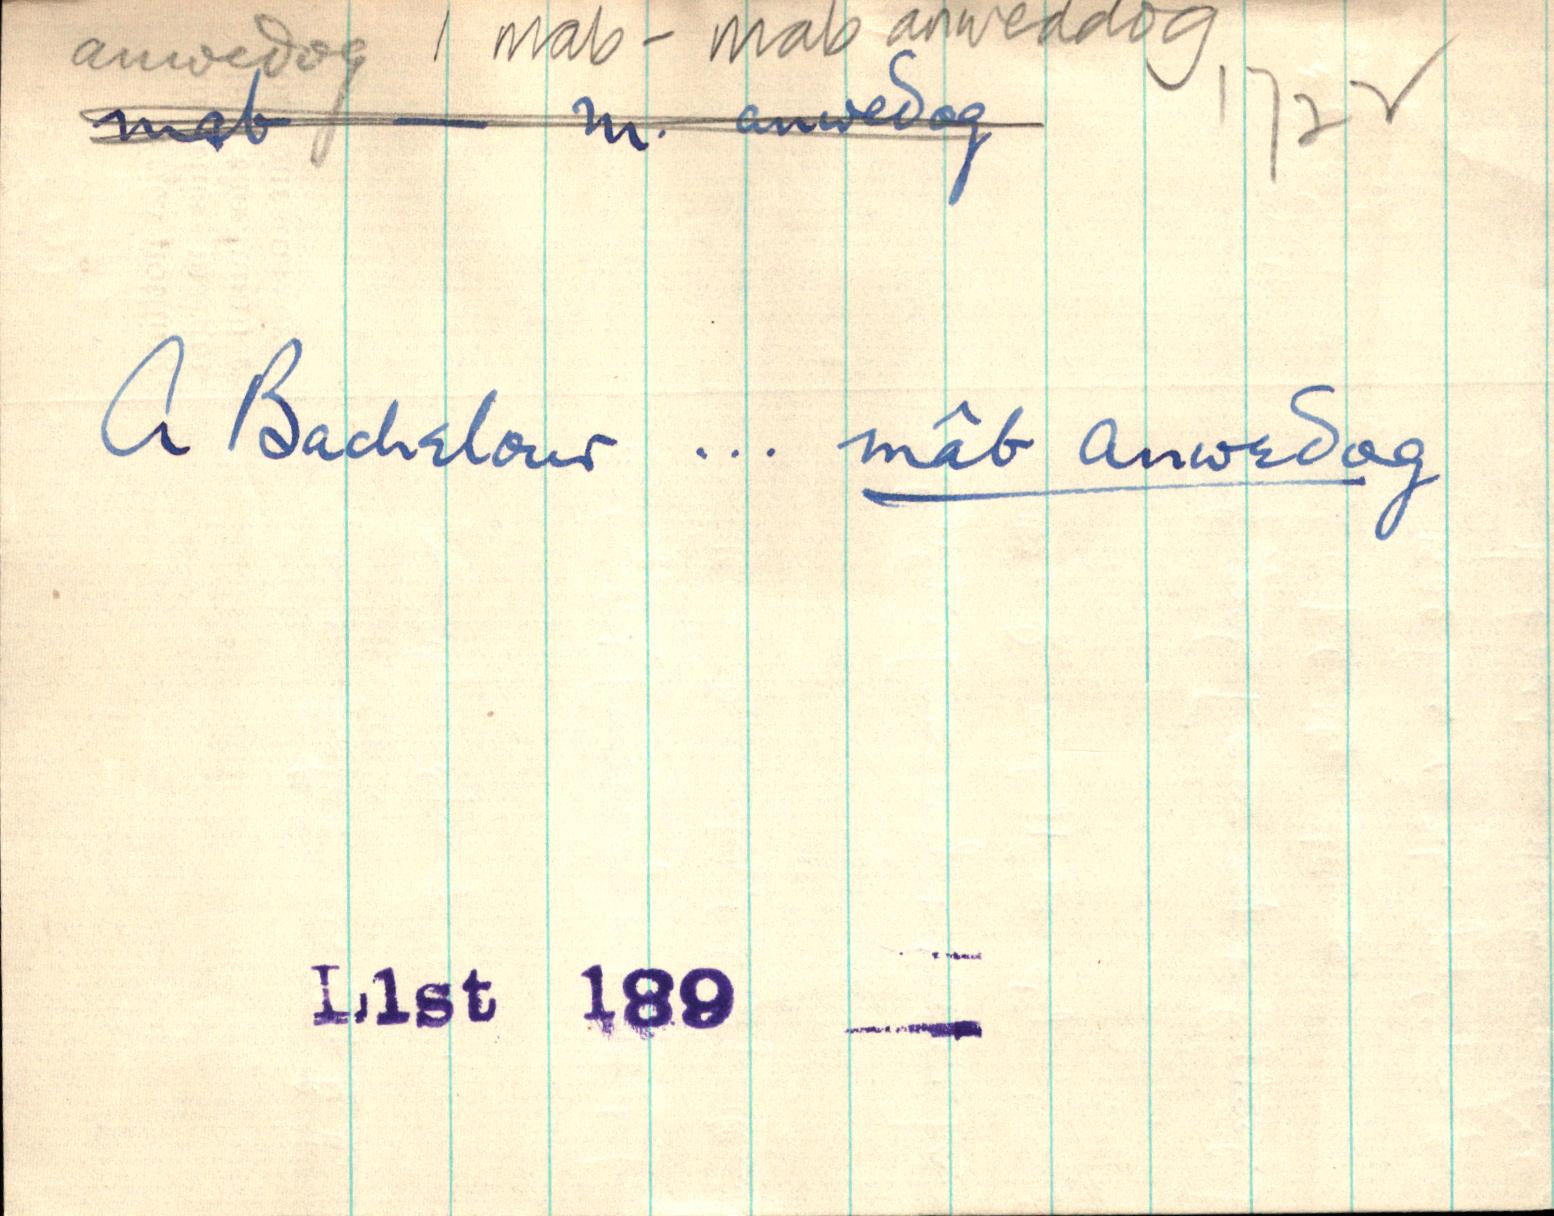 anweðog / mab - mab anweddog
1722
mab — m. anweðog
A Bachelour ... mâb anweðog
Llst 189